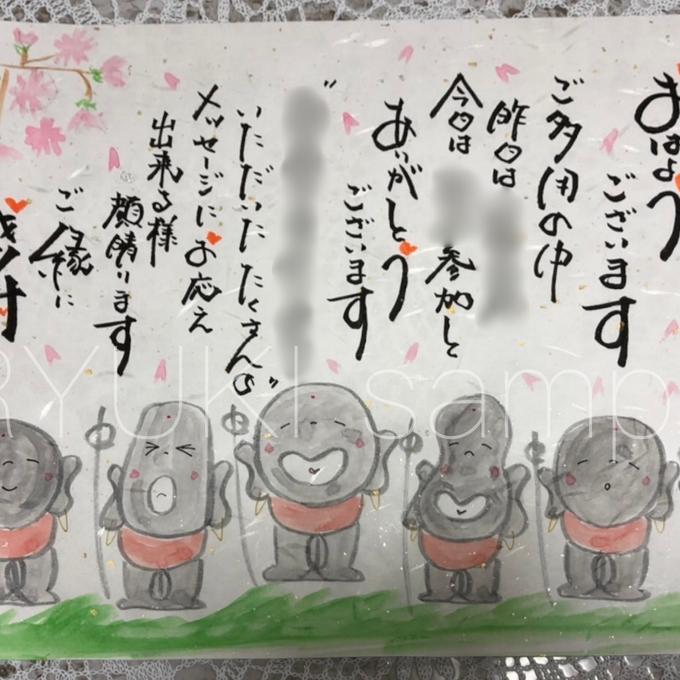 おはよう
ございます
ご多用の中
昨日は
今日は
参加と
ありがとう
ございます
"
いただいた たくさんの"
メッセージに お応え
出来る様
顔晴ります
ご縁に
RYUKI samp